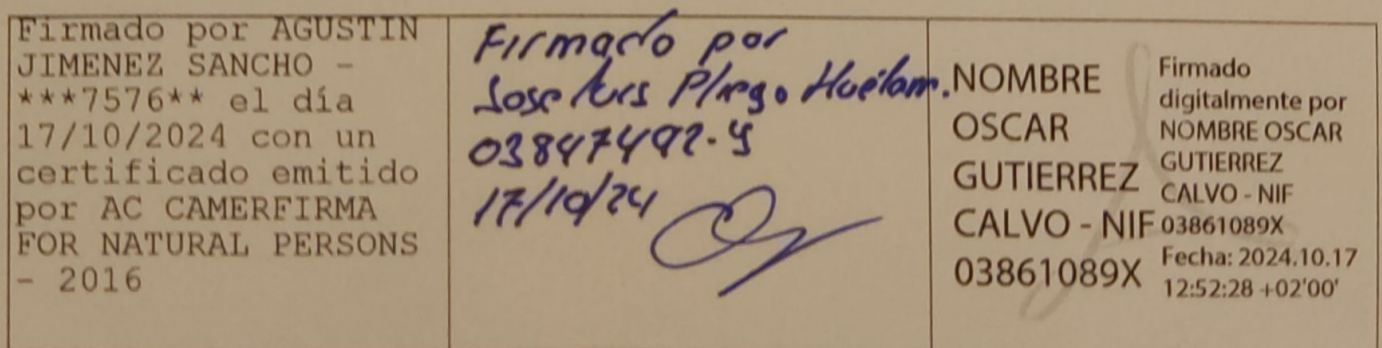 Firmado por AGUSTIN
JIMENEZ SANCHO -
***7576** el día
17/10/2024 con un
certificado emitido
por AC CAMERFIRMA
FOR NATURAL PERSONS
- 2016
Firmado por
Jose Luis Pliego
03847492-
17/10/24
NOMBRE
OSCAR
GUTIERREZ
CALVO - NIF
03861089X
Firmado
digitalmente por
NOMBRE OSCAR
GUTIERREZ
CALVO - NIF
03861089X
Fecha: 2024.10.17
12:52:28 +02'00'